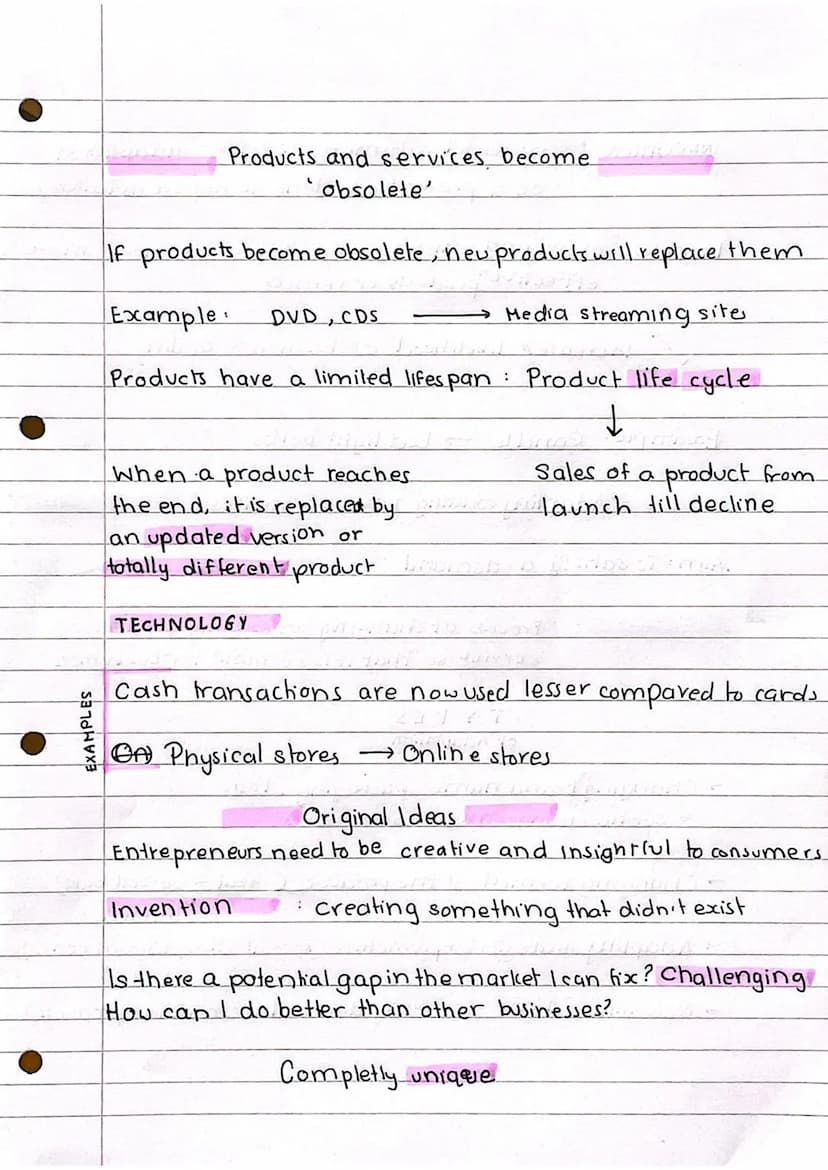 Products and services become
'obsolete'
If products become obsolete, new products will replace them
Example: DVD, CDS → Media streaming sites
Products have a limited lifespan : Product life cycle
↓
When a product reaches
the end, it is replaced by
an updated version or
totally different product
Sales of a product from
launch till decline
TECHNOLOGY
EXAMPLES
Cash transactions are now used lesser compared to cards
Physical stores → Online stores
Original Ideas
Entrepreneurs need to be creative and insightful to consumers
Invention : creating something that didn't exist
Is there a potential gap in the market I can fix? Challenging
How can I do better than other businesses?
Completly unique